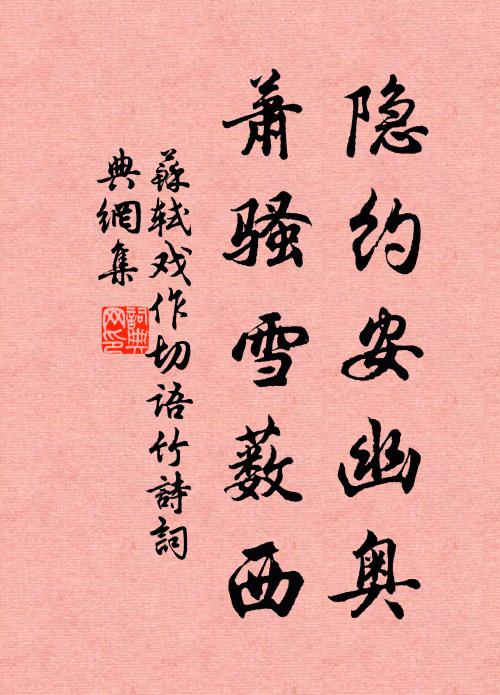 隐约安幽奥
萧骚雪薮西
蘇轼戏作切语竹詩詞
典網集
詞典网印